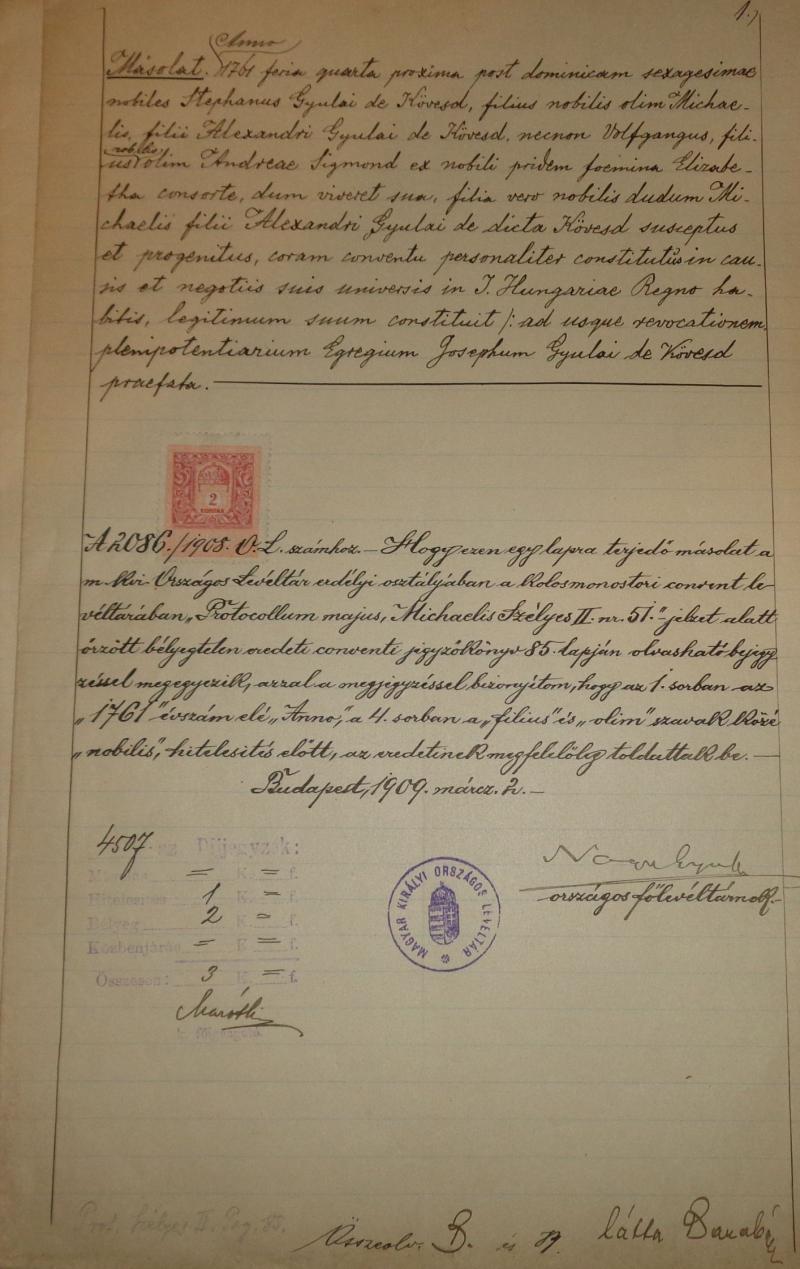 1.)
Anno
Másolat. 1761 feria quarta proxima post dominicam sexagesimae
nobiles Stephanus Gyulai de Kövesd, filius nobilis olim Michae-
lis, filii Alexandri Gyulai de Kövesd, necnon Volfgangus, fili-
nobilis
us olim Andreae Sigmond ex nobili pridem foemina Elizabe-
tha consorte, dum viveret sua, filia vero nobilis dudum Mi-
chaelis filii Alexandri Gyulai de dicta Kövesd susceptus
et progenitus, coram conventu personaliter constitutus in cau-
sis et negotiis suis universis in I. Hungariae Regno ha-
bitis, legitimum suum constituit /: ad usque revocationem
plenipotentiarium Egregium Josephum Gyulai de Kövesd
praefata.
2
KORONA
A 2086./1908. O. L. számhoz. - Hogy ezen egy lapra terjedő másolat a
m. kir. Országos Levéltár erdélyi osztályában a kolosmonostori convent le-
véltárában „Protocollum majus, Michaelis Szélyes II. nr. 51." jelzet alatt
őrzött bélyegtelen eredeti conventi jegyzőkönyv 85. lapján olvasható bejegy-
zéssel megegyezik, azzal a megjegyzéssel bizonyítom, hogy az 1. sorban az
„1761" évszám elé „Anno," a 4. sorban a „filius" és „olim" szavak közé
„nobilis", hitelesítés előtt, az eredetinek megfelelőleg tolduttak be. —
Budapest, 1909. márcz. 2. —
4507 sz. Díjjegyzék:
= K. = f.
Hitelesítés 1 K. = f.
Bélyeg 2 K. = f.
Közbenjárás = K. = f.
Összesen: 3 K. = f.
MAGYAR KIRÁLYI ORSZÁGOS LEVÉLTÁR
országos főlevéltárnok.
Prot. Szélyes II. Pag. 85.
Összeolv. B. és
látta Barabás